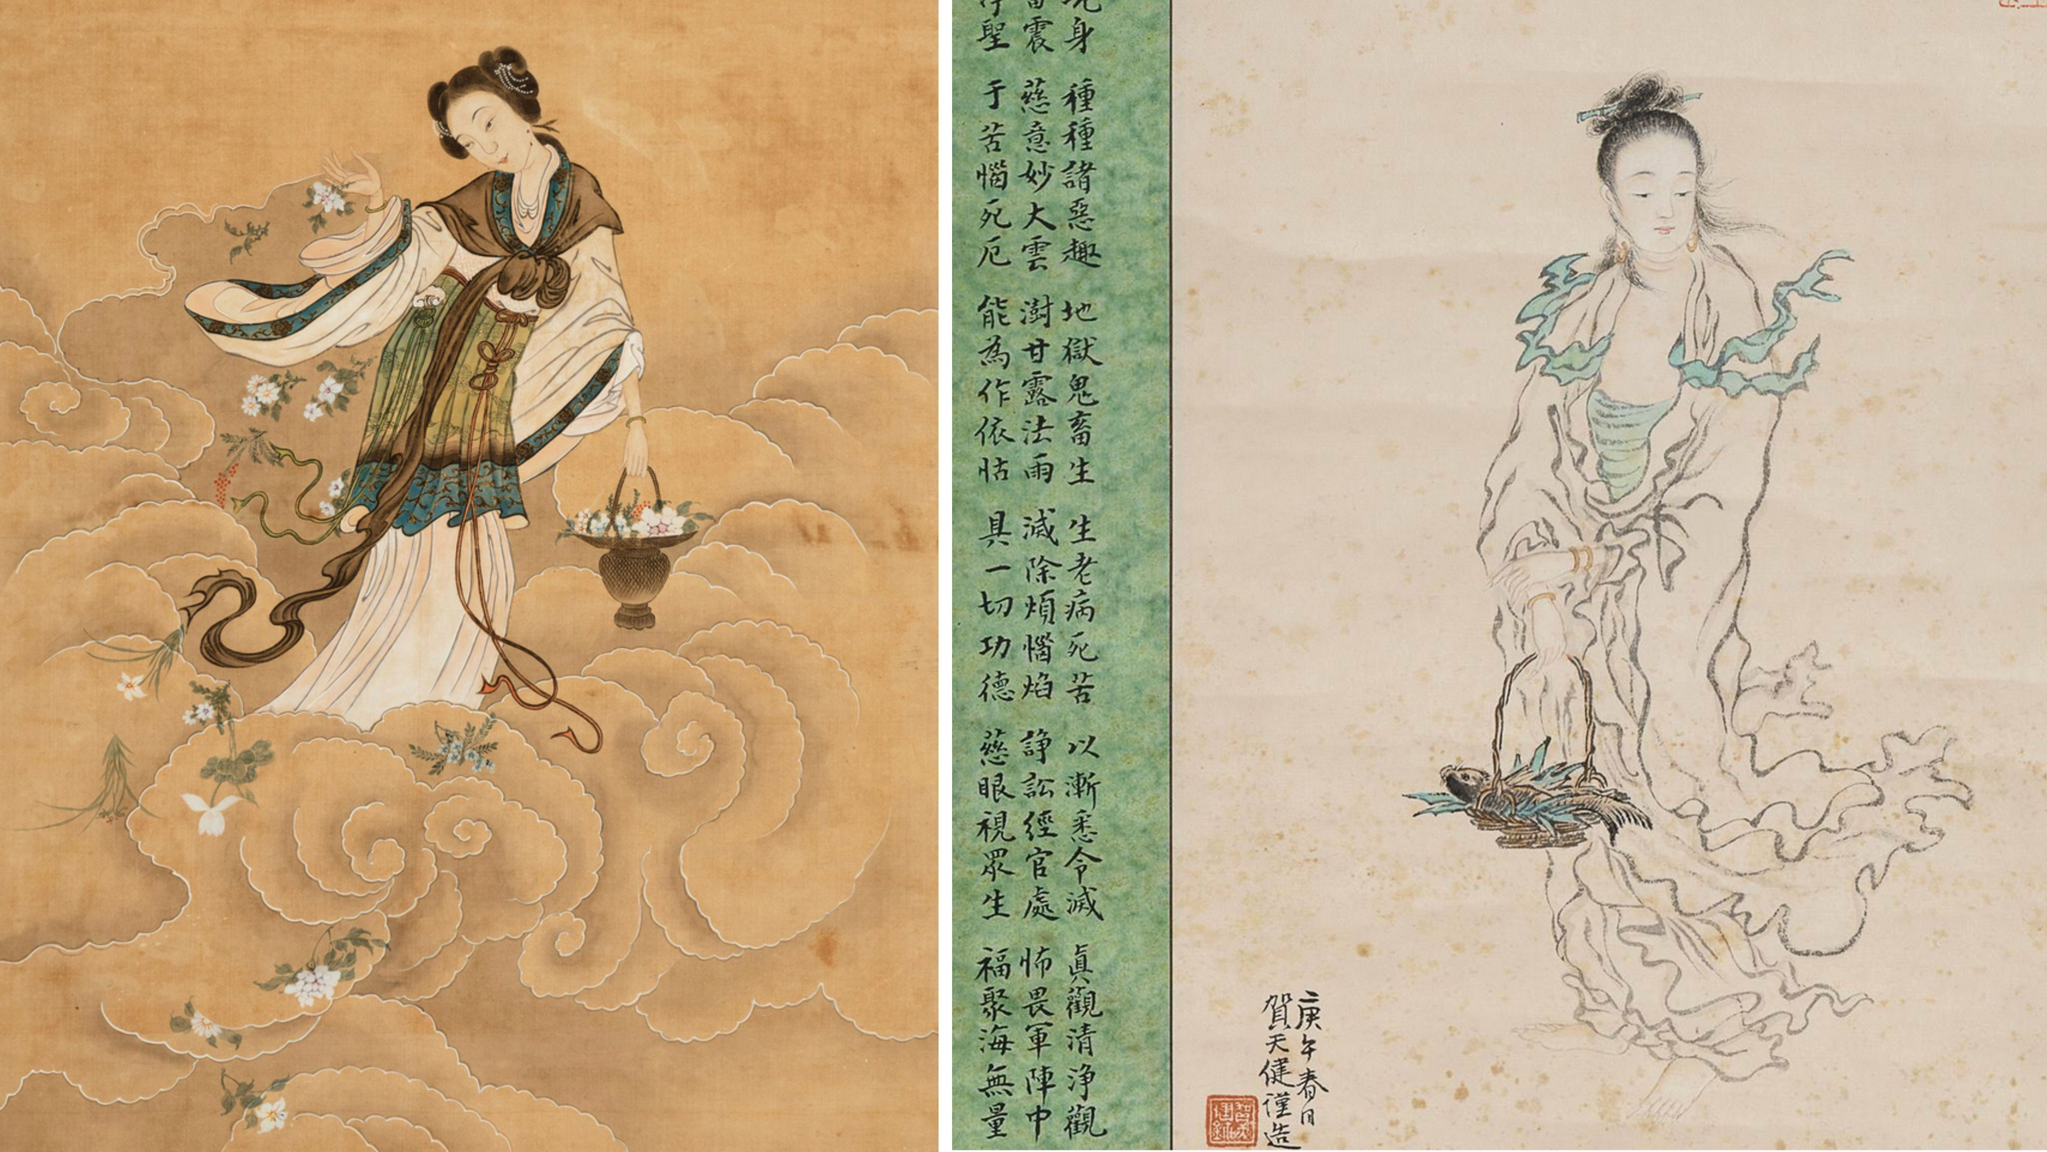 庚午春日
賀天健謹造
身 種種諸惡趣 地獄鬼畜生 生老病死苦 以漸悉令滅 眞觀清淨觀
震 慈意妙大雲 澍甘露法雨 滅除煩惱焰 諍訟經官處 怖畏軍陣中
聖 于苦惱死厄 能為作依怙 具一切功德 慈眼視眾生 福聚海無量